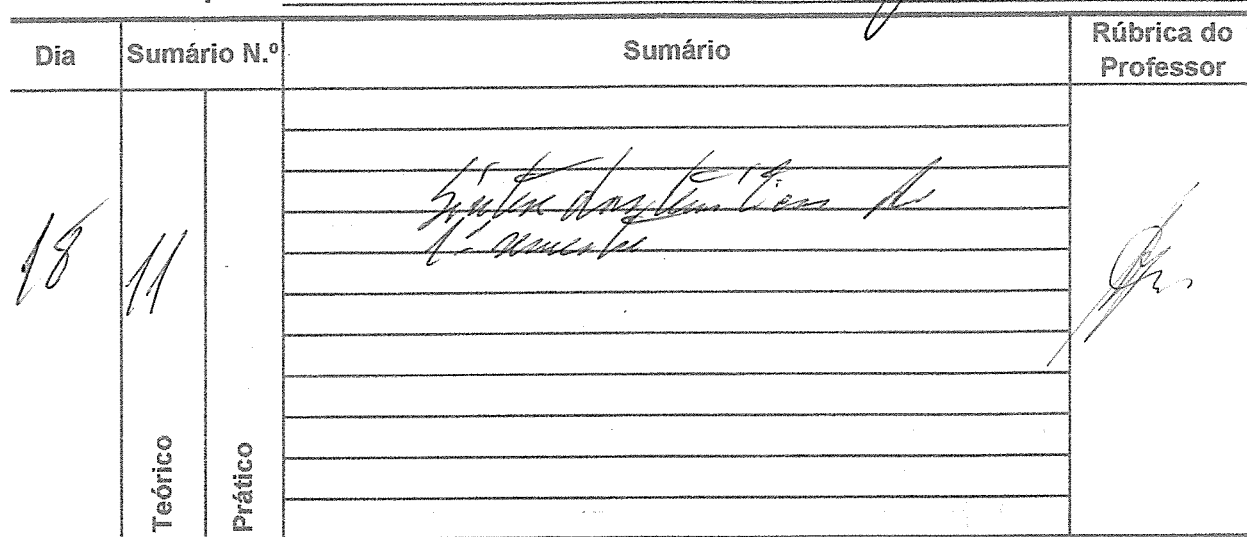 Dia Sumário N.º Sumário Rúbrica do Professor
18 11
Síntese das temáticas do
1.º semestre
Teórico Prático